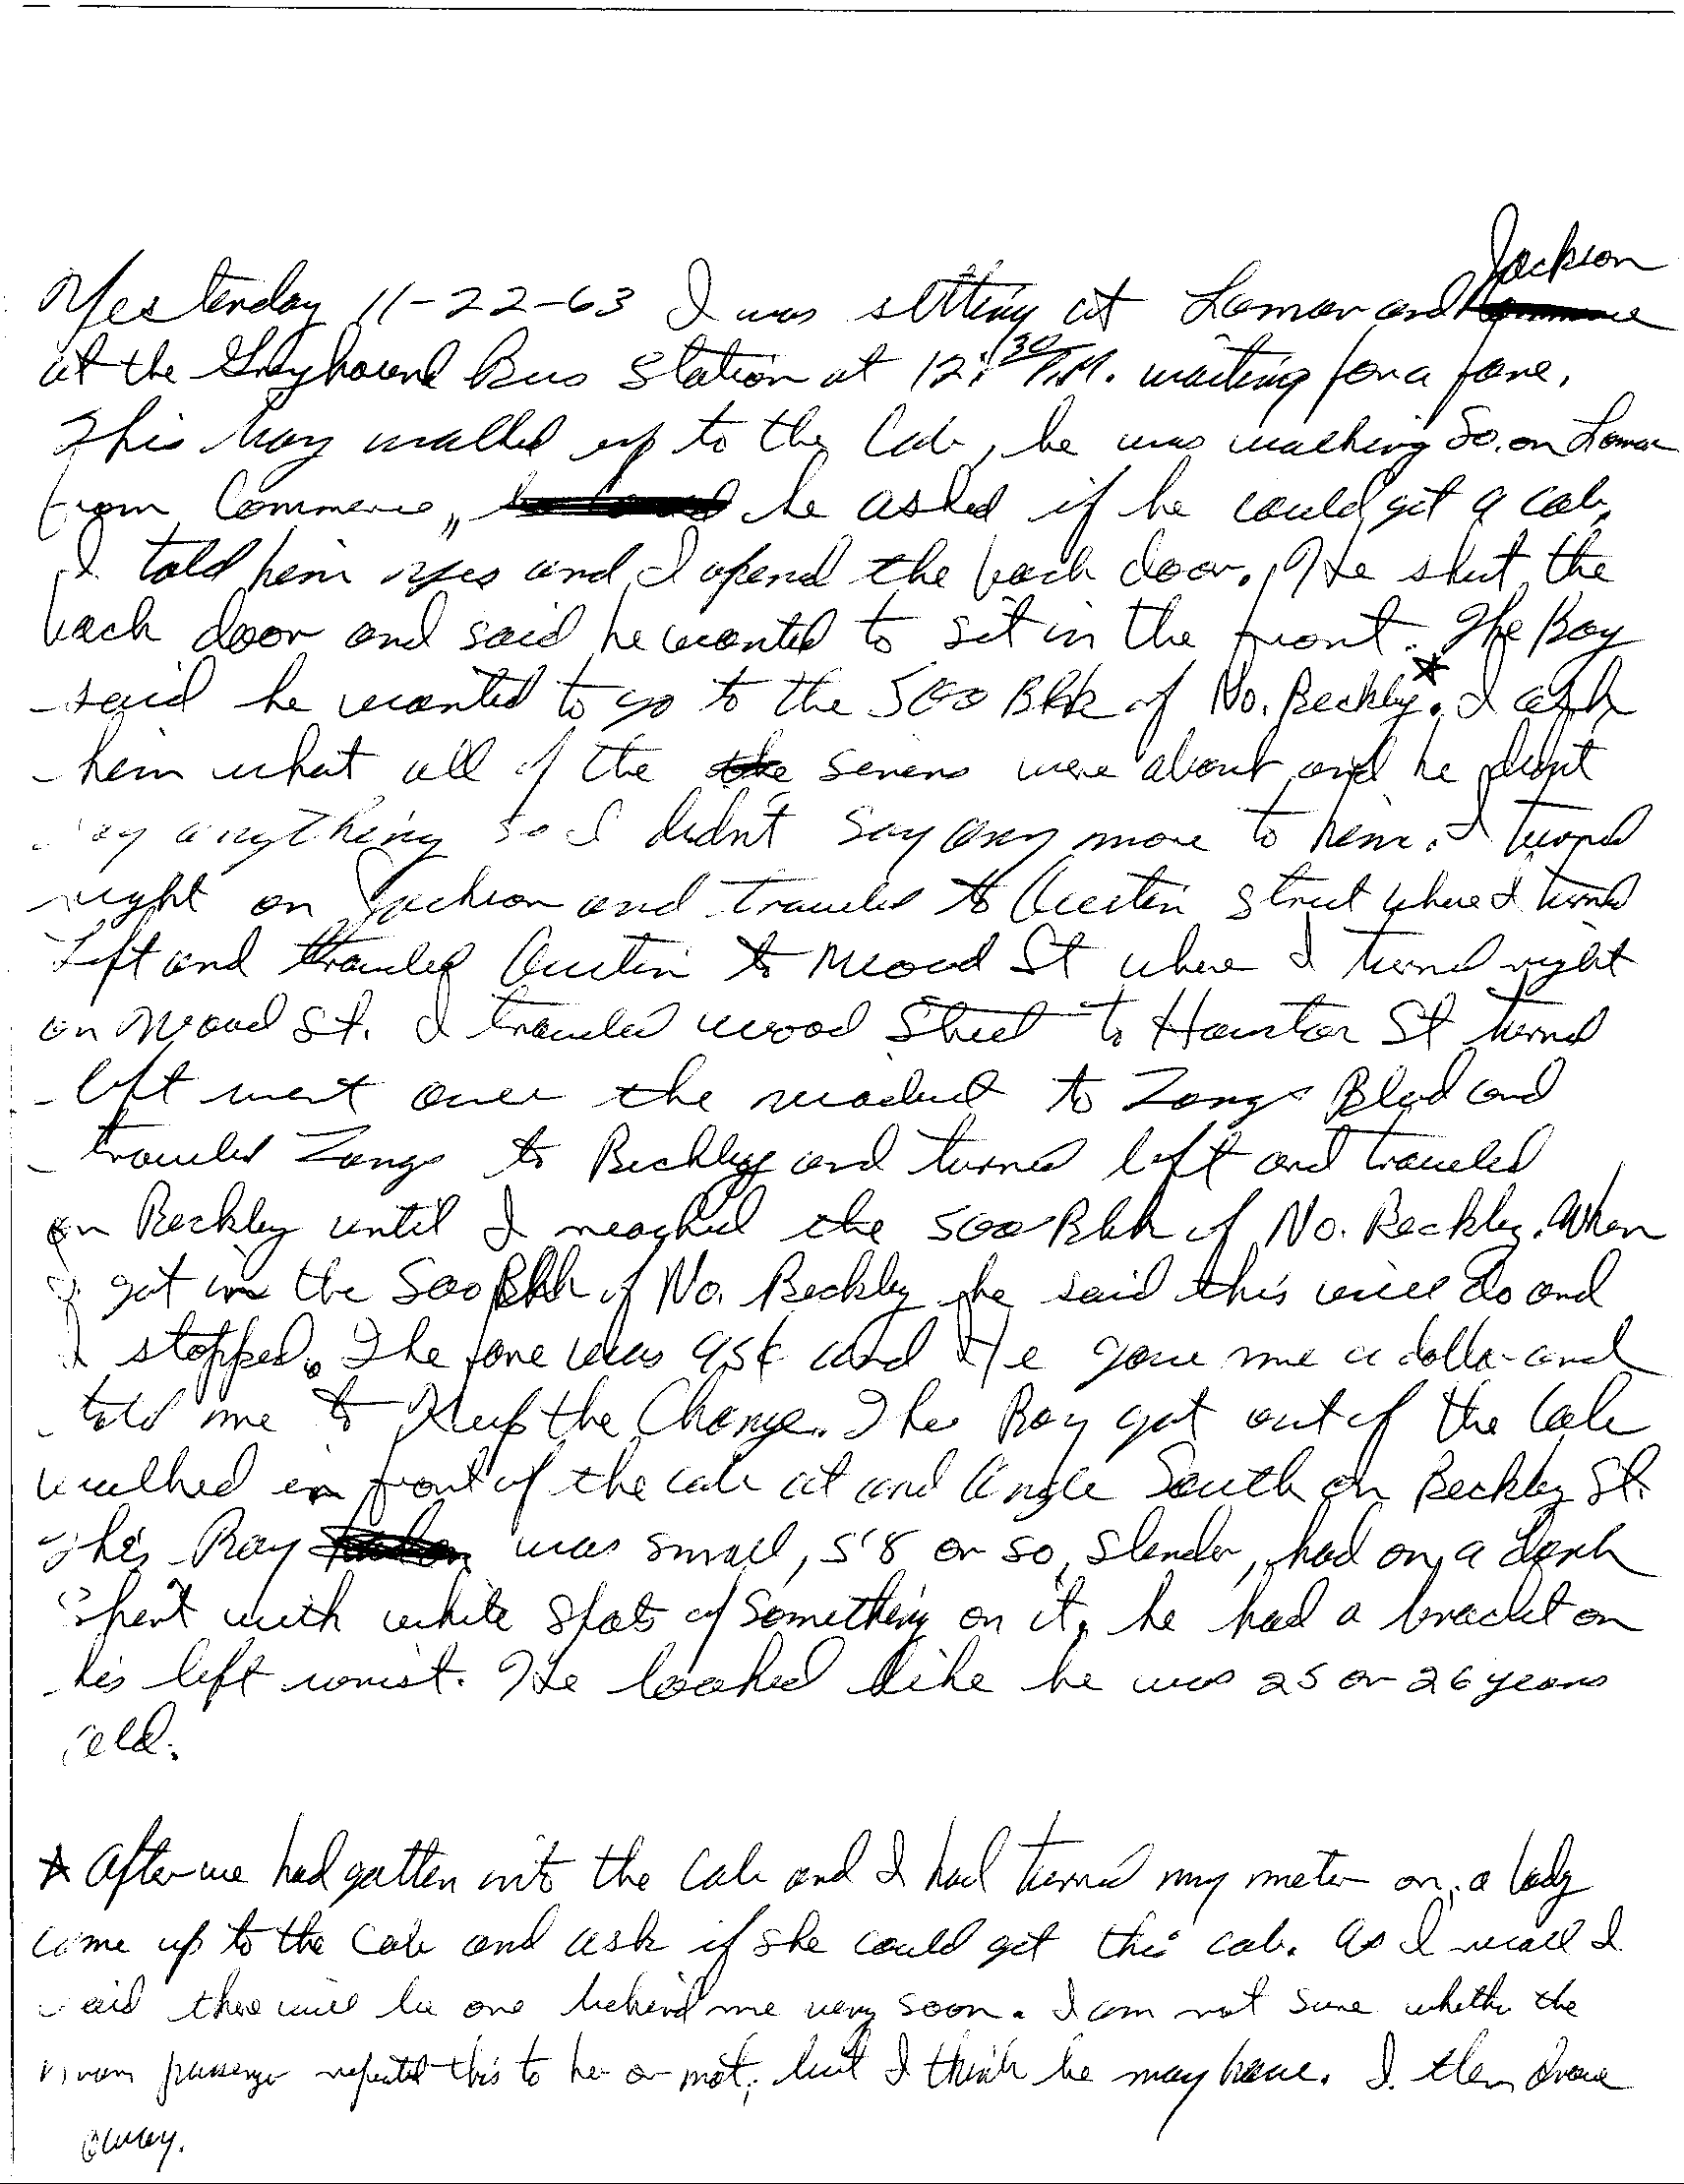 Yesterday 11-22-63 I was sitting at Lamar and Jackson
at the Greyhound Bus Station at 12:30 P.M. waiting for a fare.
This boy walked up to the Cab, he was walking So. on Lamar
from Commerce, he asked if he could get a cab.
I told him yes and I opend the back door. He shut the
back door and said he wanted to sit in the front. The Boy
said he wanted to go to the 500 Blk of No. Beckley.* I ask
him what all of the sirens were about and he didnt
say anything so I didn't say any more to him. I turned
right on Jackson and traveled to Austin Street where I turned
Left and traveled Austin to Wood St where I turned right
on Wood St. I traveled wood Street to Houston St turned
left went over the viaduct to Zangs Blvd and
traveled Zangs to Beckley and turned left and traveled
on Beckley until I reached the 500 Blk of No. Beckley. When
I got in the 500 Blk of No. Beckley he said this will do and
I stopped. The fare was 95¢ and He gave me a dollar and
told me to Keep the Change. The Boy got out of the Cab
walked in front of the cab at and angle South on Beckley St.
This Boy was small, 5'8 or so, slender, had on a dark
shirt with white spots of something on it. he had a bracelet on
his left wrist. He looked like he was 25 or 26 years
old.
* After we had gotten into the Cab and I had turned my meter on, a lady
came up to the Cab and ask if she could get this cab. As I recall I
said there will be one behind me very soon. I am not sure whether the
passenger repeated this to her or not, but I think he may have. I then drove
away.